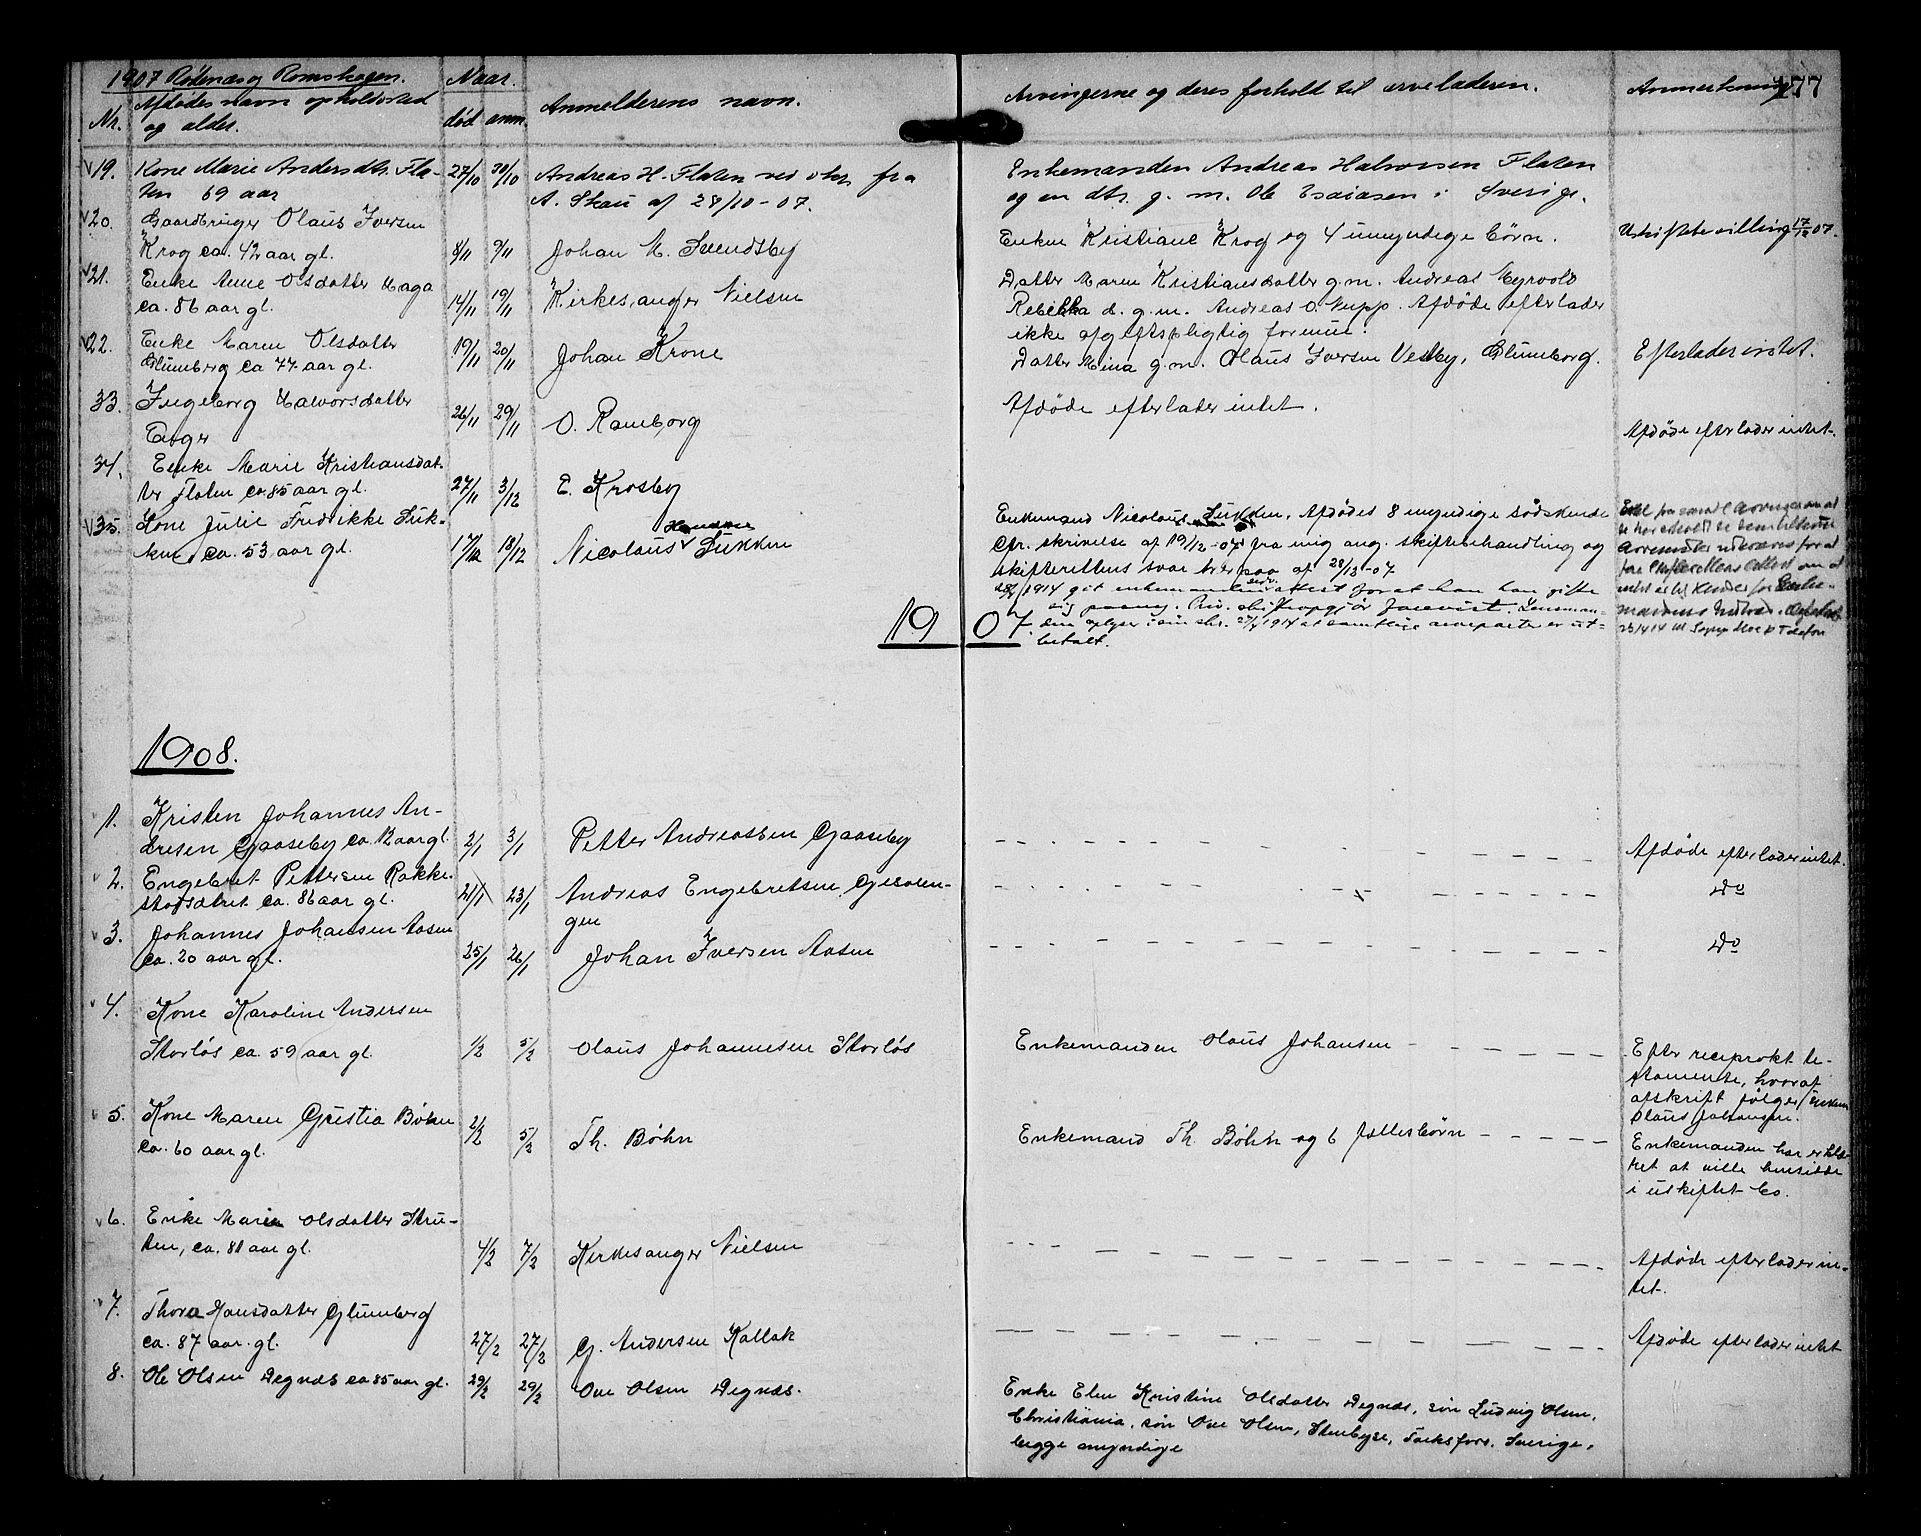 1907 Rødenæs og Romskogen.
Nr.
Afdødes navn opholdssted
og alder.
Naar.
død anm.
Anmelderens navn.
Arvingerne og deres forhold til arveladeren.
Anmerkning
177
19. Kone Marie Andersdtr. Fla-
ten 69 aar
27/10 30/10
Andreas H. Flaten ved skr. fra
A. Skau af 28/10-07.
Enkemanden Andreas Halvorsen Flaten
og en dtr. g. m. Ole Esaiasen i Sverige.
20. Gaardbruger Olaus Iversen
Krog ca. 42 aar gl.
8/11 9/11
Johan M. Svendsby
Enken Kristiane Krog og 4 umyndige børn.
Uskiftebevilling 17/12 07.
21. Enke Anne Olsdatter Haga
ca. 86 aar gl.
14/11 19/11
Kirkesanger Nielsen
Datter Maren Kristiansdatter g.m. Andreas Myrvold
Rebekka d. g.m. Andreas O. Nupp. Afdøde efterlader
ikke afgiftspligtig formue.
22. Enke Maren Olsdatter
Glümberg ca 77 aar gl.
19/11 20/11
Johan Krone
Datter Mina g.m. Olaus Iversen Vestby, Glümberg.
Efterlader intet.
33. Ingeborg Halvorsdatter
Enger
26/11 29/11
O. Ramborg
Afdøde efterlader intet.
Afdøde efterlader intet.
34. Enke Marie Kristiansdat-
ter Flaten ca. 85 aar gl.
27/11 3/12
E. Krosby
35. Kone Julie Fredrikke Suk-
ken ca. 53 aar gl.
17/12 18/12
Nicolaus Hansen Sukken
Enkemand Nicolaus Sukken. Afdødes 8 myndige sødskende
Cfr. skrivelse af 19/12-07 fra mig ang. skiftebehandling og
skifterettens svar herpaa af 28/12-07
1914 git enkemanden attest for at han kan gifte
sig paany. Priv. skifteopgjør forevist. Lensman-
den oplyser i sin skr. 27/4 1914 at samtlige arveparter er ut-
betalt.
1907
1908.
1. Kristen Johannes An-
dresen Gaaseby ca. 12 aar gl.
2/1 3/1
Petter Andreassen Gaaseby
Afdøde efterlader intet.
2. Engebret Pettersen Rakke-
stadsætret ca. 86 aar gl.
21/1 23/1
Andreas Engebretsen Gjeslen-
gen
Do
3. Johannes Johansen Aasen
ca. 20 aar gl.
25/1 26/1
Johan Iversen Aasen
Do
4. Kone Karoline Andersen
Storløs ca. 59 aar gl.
1/2 5/2
Olaus Johannesen Storløs
Enkemanden Olaus Johansen
Efter reciprokt te-
stamente, hvoraf
afskrift følger, enkem.
Olaus Johansen.
5. Kone Maren Gustia Bøhn
ca. 60 aar gl.
2/2 5/2
Th. Bøhn
Enkemand Th. Bøhn og 6 fællesbørn
Enkemanden har erklæ-
ret at ville hensidde
i uskiftet bo.
6. Enke Maria Olsdatter Stru-
ten, ca. 81 aar gl.
4/2 7/2
Kirkesanger Nielsen
Afdøde efterlader in-
tet.
7. Thora Hansdatter Glümberg
ca. 87 aar gl.
27/2 27/2
G. Andersen Kallak
Afdøde efterlader intet
8. Ole Olsen Degnæs ca 85 aar gl.
29/2 29/2
Ove Olsen Degnæs.
Enke Elen Kristine Olsdatter Degnæs, søn Ludvig Olsen,
Christiania, søn Ove Olsen, Stenbyse, Töcksfors, Sverige,
begge myndige